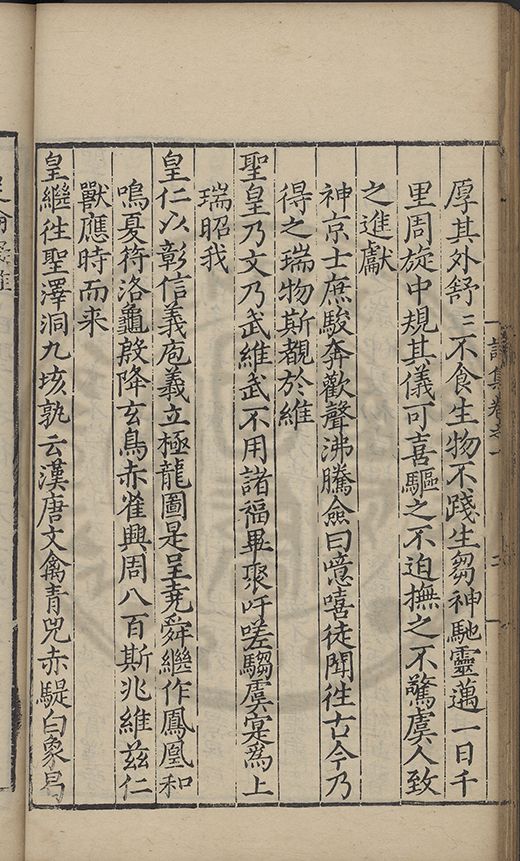 厚其外舒〻不食生物不踐生芻神馳靈邁一日千
里周旋中規其儀可喜驅之不迫撫之不驚虞人致
之進獻
神京士庶駿奔歡聲沸騰僉曰噫嘻徒聞徃古今乃
得之瑞物斯覩於維
聖皇乃文乃武維武不用諸福畢聚吁嗟騶虞寔爲上
瑞昭我
皇仁以彰信義庖羲立極龍圖是呈堯舜繼作鳳凰和
鳴夏符洛龜殷降玄鳥赤雀興周八百斯兆維兹仁
獸應時而来
皇繼徃聖澤洞九垓孰云漢唐文禽青兕赤騠白象曷
詩集卷之一
二